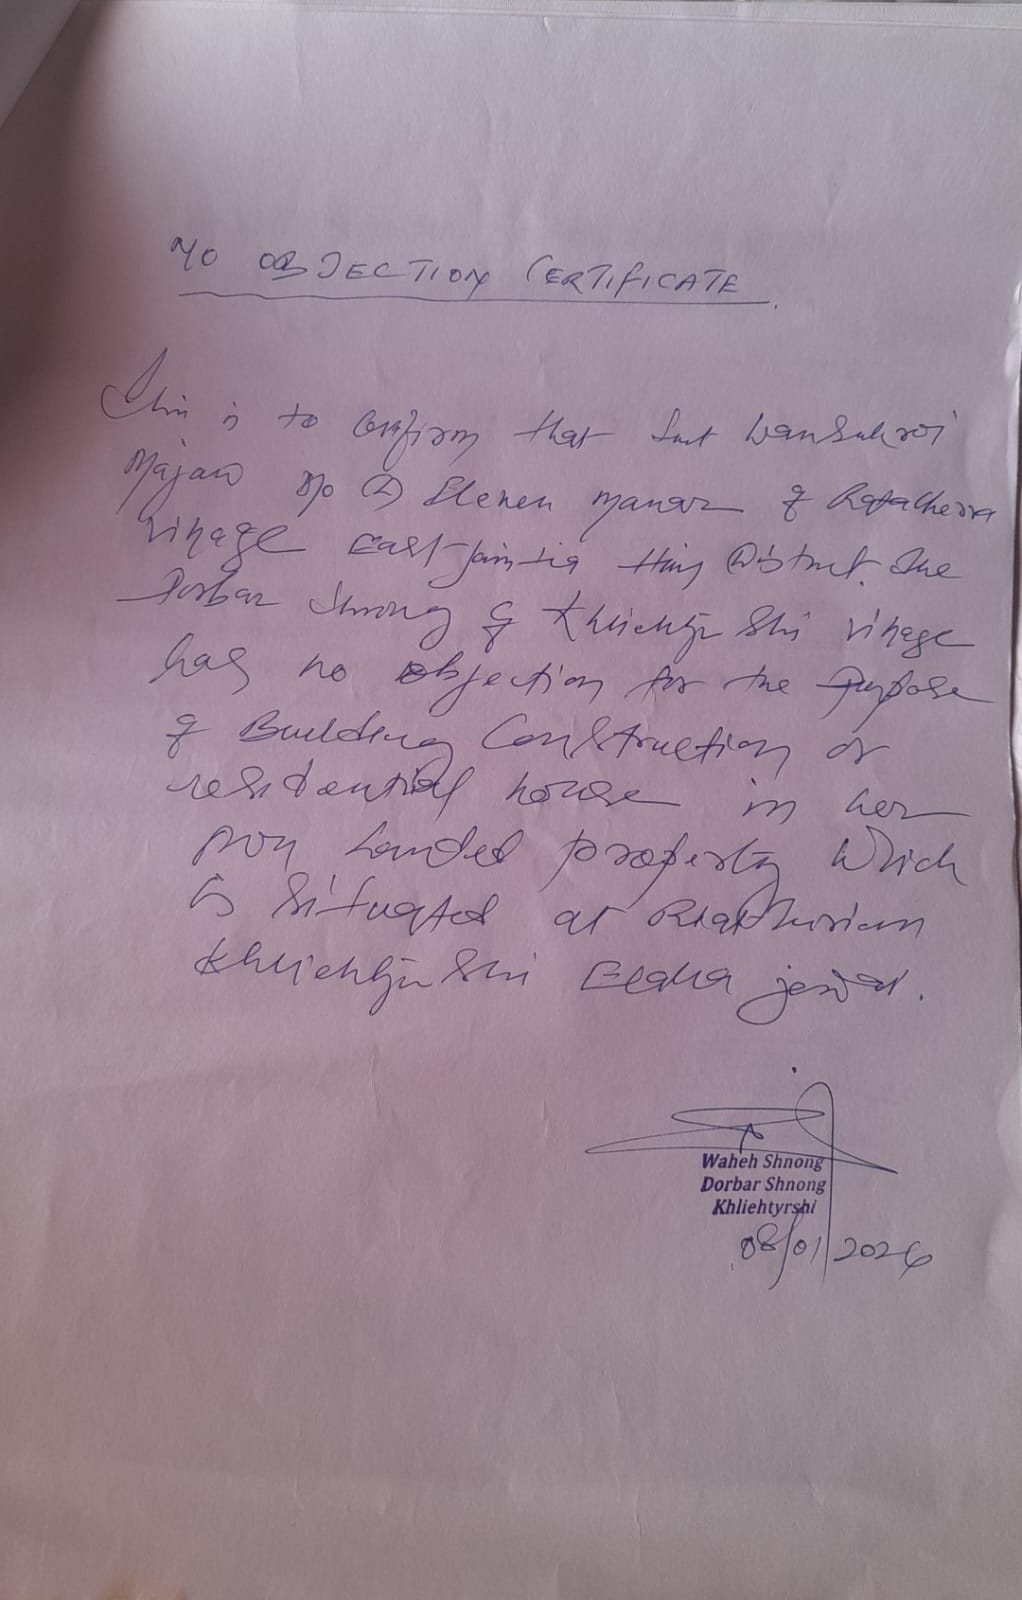 NO OBJECTION CERTIFICATE.
This is to confirm that Smt Wansukroi
Majaw D/o (L) Elenen Manar of Ratacherra
village East Jaintia Hills District. The
Dorbar Shnong of Khliehtyrshi village
has no objection for the Purpose
of Building Construction or
residential house in her
own Landed property which
is Situated at
Khliehtyrshi Elaka jowai.
Waheh Shnong
Dorbar Shnong
Khliehtyrshi
08/01/2026